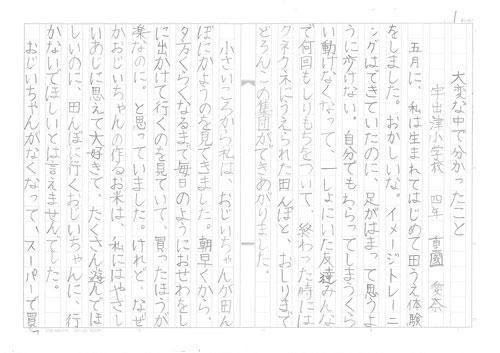 1
大変な中で分かったこと
宇出津小学校　四年　重國　愛奈
五月に、私は生まれてはじめて田うえ体験
をしました。おかしいな。イメージトレーニ
ングはできていたのに、足がはまって思うよ
うに歩けない。自分でもわらってしまうくら
い動けなくなって、いっしょにいた友達みんな
で何回もしりもちをついて、終わった時には
クネクネにうえられた田んぼと、おしりまで
どろんこの集団ができあがりました。
小さいころから私は、おじいちゃんが田ん
ぼにかようのを見てきました。朝早くから、
夕方くらくなるまで毎日のようにおせわをし
に出かけて行くのを見ていて、買ったほうが
楽なのに。と思っていました。けれど、なぜ
かおじいちゃんの作るお米は、私にはやさし
いあじに思えて大好きで、たくさん遊んでほ
しいのに、田んぼに行くおじいちゃんに、行
かないでほしいとは言えませんでした。
おじいちゃんがなくなって、スーパーで買っ